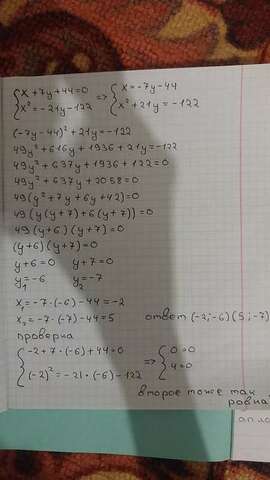 {x+7y+44=0 => {x=-7y-44
{x²=-21y-122 {x²+21y=-122
(-7y-44)²+21y=-122
49y²+616y+1936+21y=-122
49y²+637y+1936+122=0
49y²+637y+2058=0
49(y²+7y+6y+42)=0
49(y(y+7)+6(y+7))=0
49(y+6)(y+7)=0
(y+6)(y+7)=0
y+6=0 y+7=0
y₁=-6 y₂=-7
x₁=-7·(-6)-44=-2
x₂=-7·(-7)-44=5 ответ (-2;-6)(5;-7)
проверка
{-2+7·(-6)+44=0 => {0=0
{(-2)²=-21·(-6)-122 {4=0
второе тоже так